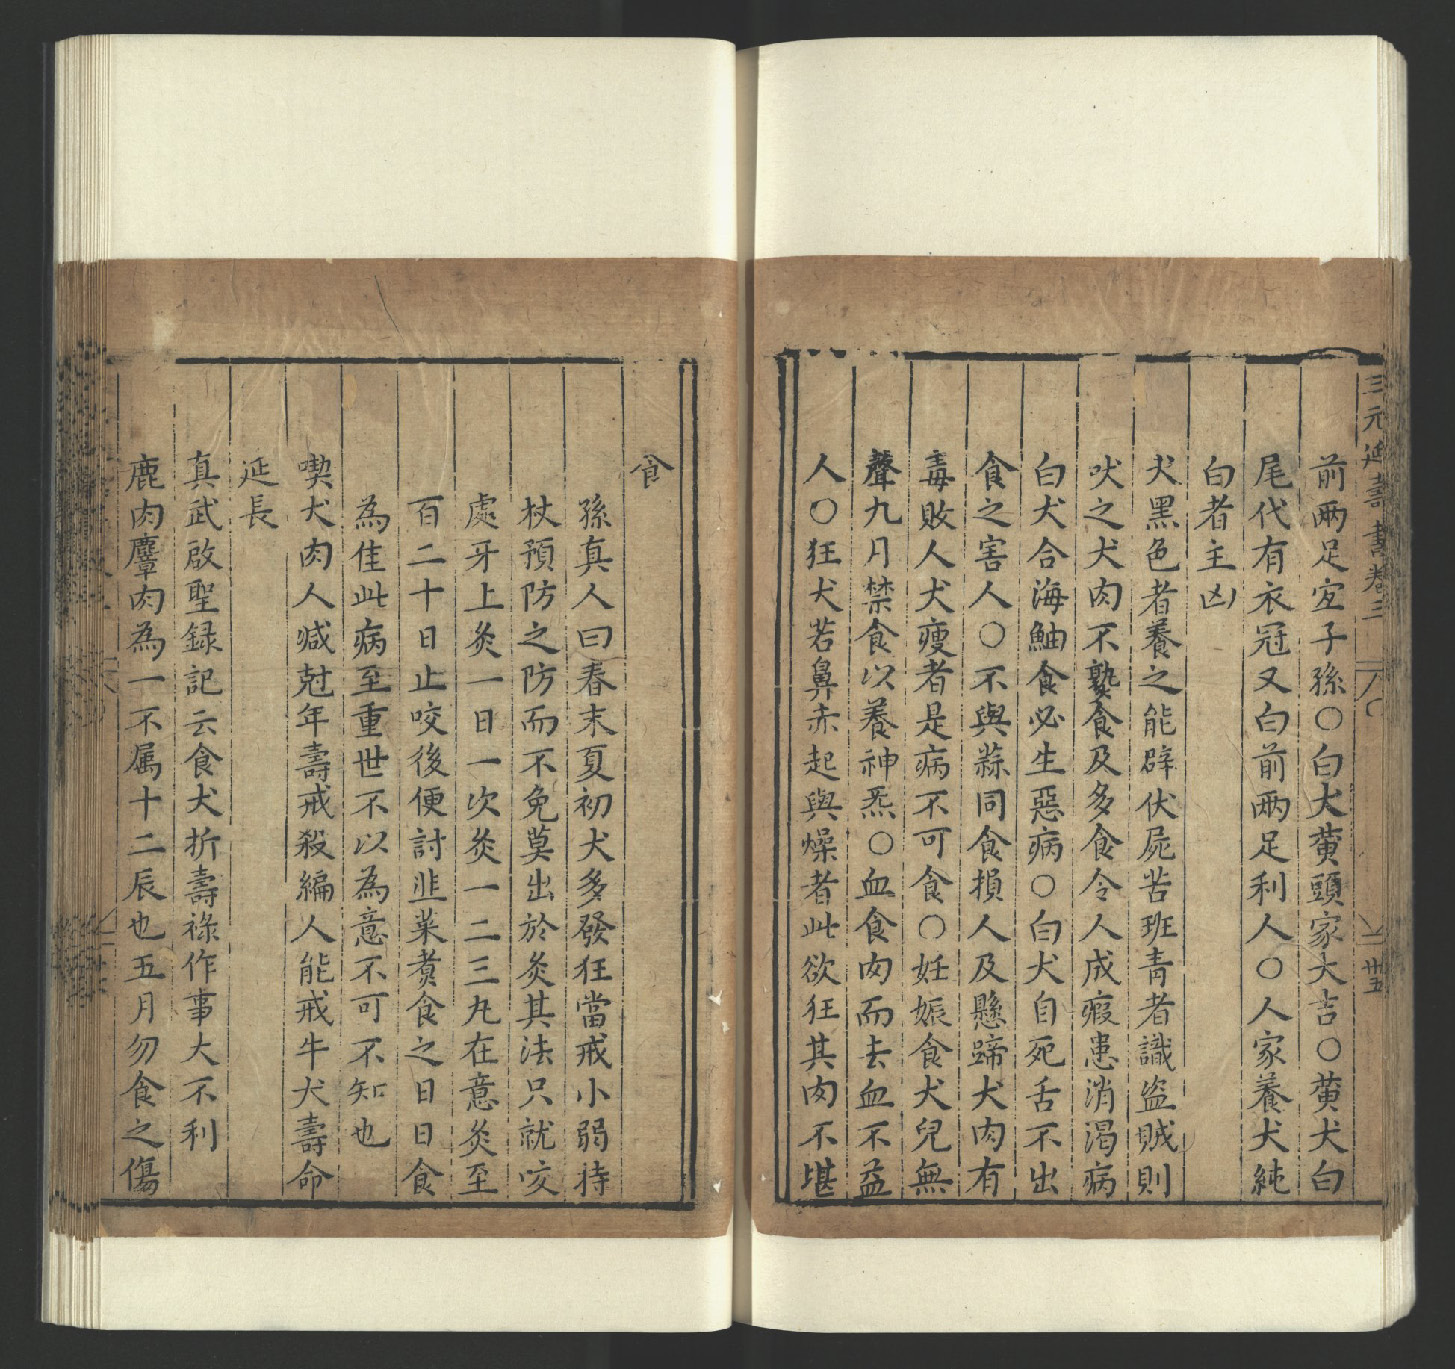 三元延壽書卷三
卅五
前兩足宐子孫○白犬黃頭家大吉○黃犬白
尾代有衣冠又白前兩足利人○人家養犬純
白者主凶
犬黑色者養之能辟伏屍苦班青者識盜賊則
吠之犬肉不熟食及多食令人成瘕患消渴病
白犬合海鮋食必生惡病○白犬自死舌不出
食之害人○不與蒜同食損人及懸蹄犬肉有
毒敗人犬瘦者是病不可食○妊娠食犬兒無
聲九月禁食以養神炁○血食肉而去血不益
人○狂犬若鼻赤起與燥者此欲狂其肉不堪
食
孫真人曰春末夏初犬多發狂當戒小弱持
杖預防之防而不免莫出於灸其法只就咬
處牙上灸一日一次灸一二三丸在意灸至
百二十日止咬後便討韭菜煮食之日日食
為佳此病至重世不以為意不可不知也
喫犬肉人减尅年壽戒殺編人能戒牛犬壽命
延長
真武啟聖録記云食犬折壽祿作事大不利
鹿肉麞肉為一不属十二辰也五月勿食之傷